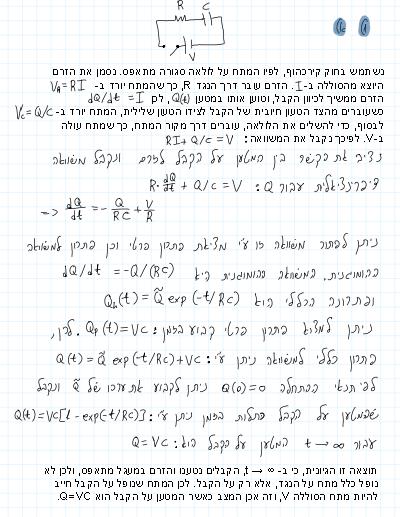 R C
V
נשתמש בחוק קירכהוף, לפיו המתח על לולאה סגורה מתאפס. נסמן את הזרם
היוצא מהסוללה ב-I. הזרם עובר דרך הנגד R, כך שהמתח יורד ב- V_R=RI
הזרם ממשיך לכיוון הקבל, וטוען אותו במטען Q(t), לכן dQ/dt = I
כשעוברים מהצד הטעון חיובית של הקבל לצידו הטעון שלילית, המתח יורד ב- V_C=Q/C
לבסוף, כדי להשלים את הלולאה, עוברים דרך מקור המתח, כך שמתח עולה
ב-V. לפיכך נקבל את המשוואה: RI + Q/C = V
נציב את הקשר בין המטען על הקבל לזרם ונקבל משוואה
דיפרנציאלית עבור Q: R·dQ/dt + Q/C = V
=> dQ/dt = -Q/RC + V/R
ניתן לפתור משוואה זו ע"י מציאת פתרון פרטי וכן פתרון למשוואה
ההומוגנית. המשוואה ההומוגנית היא dQ/dt = -Q/(RC)
ופתרונה הכללי הוא Q_h(t) = Q̃ exp(-t/RC)
ניתן למצוא פתרון פרטי קבוע בזמן: Q_p(t) = VC. לכן,
פתרון כללי למשוואה ניתן ע"י: Q(t) = Q̃ exp(-t/RC) + VC
לפי תנאי ההתחלה Q(0)=0 ניתן לקבוע את ערכו של Q̃ ונקבל
שהמטען על הקבל כתלות בזמן ניתן ע"י: Q(t) = VC[1 - exp(-t/RC)]
עבור t → ∞ המטען על הקבל הוא: Q = VC
תוצאה זו הגיונית, כי ב- t → ∞, הקבלים נטענו והזרם במעגל מתאפס, ולכן לא
נופל כלל מתח על הנגד, אלא רק על הקבל. לכן המתח שנופל על הקבל חייב
להיות מתח הסוללה V, וזה אכן המצב כאשר המטען על הקבל הוא Q=VC.